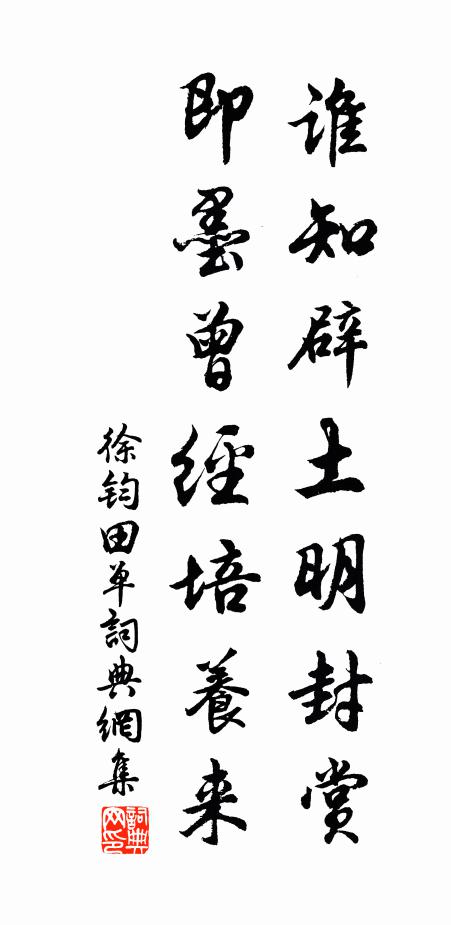 誰知辟土明封賞
即墨曾經培養来
徐鈞田单詞典網集
詞典网印